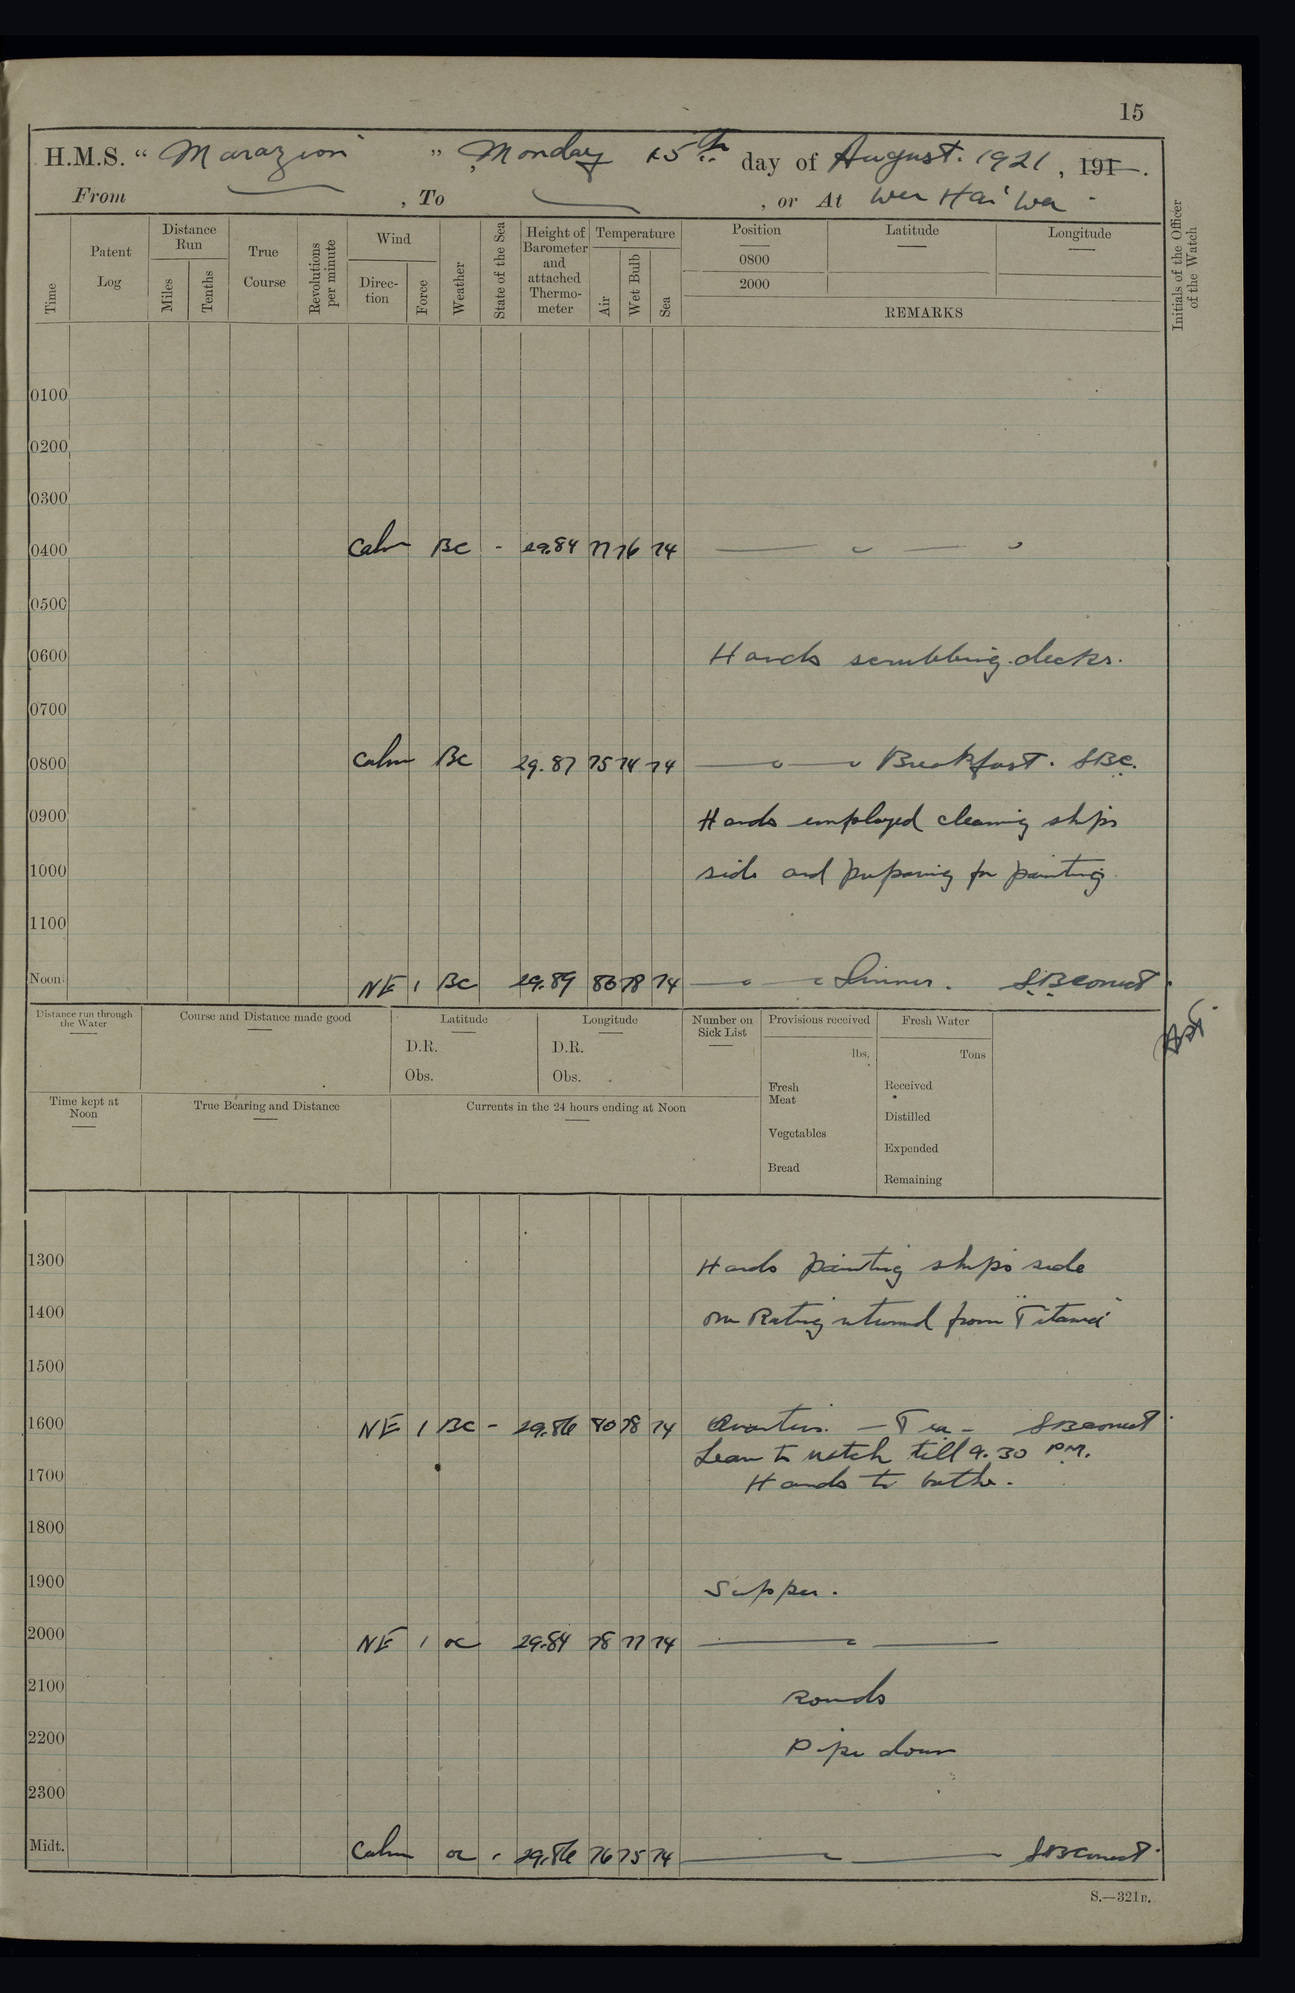 15
H.M.S. “ Marazion ” , Monday 15th day of August. 1921 , 191 .
From , To , or At Wei Hai Wei
Time Patent Log Distance Run Miles Tenths True Course Revolutions per minute Wind Direc- tion Force Weather State of the Sea Height of Barometer and attached Thermo- meter Temperature Air Wet Bulb Sea Position 0800 2000 Latitude Longitude
REMARKS
Initials of the Officer of the Watch
0100
0200
0300
0400 Calm BC - 29.84 77 76 74
0500
0600 Hands scrubbing decks.
0700
0800 Calm BC 29.87 75 74 74 Breakfast. SBC.
0900 Hands employed cleaning ships
1000 side and preparing for painting
1100
Noon NE 1 BC 29.89 78 74 Dinner.
Distance run through the Water Course and Distance made good Latitude Longitude Number on Sick List Provisions received Fresh Water
D.R. D.R. lbs. Tons
Obs. Obs. Fresh Meat Received
Time kept at Noon True Bearing and Distance Currents in the 24 hours ending at Noon
Distilled
Vegetables Expended
Bread Remaining
1300 Hands painting ship's side
1400 One Rating returned from "Titania"
1500
1600 NE 1 BC - 29.86 80 78 74 Quarters. - Tea -
Leave to watch till 9.30 PM.
1700 Hands to bathe.
1800
1900 Supper.
2000 NE 1 oc 29.84 78 77 74
2100 Rounds
2200 Pipe down
2300
Midt. Calm oc - 29.86 76 75 74
S.—321B.